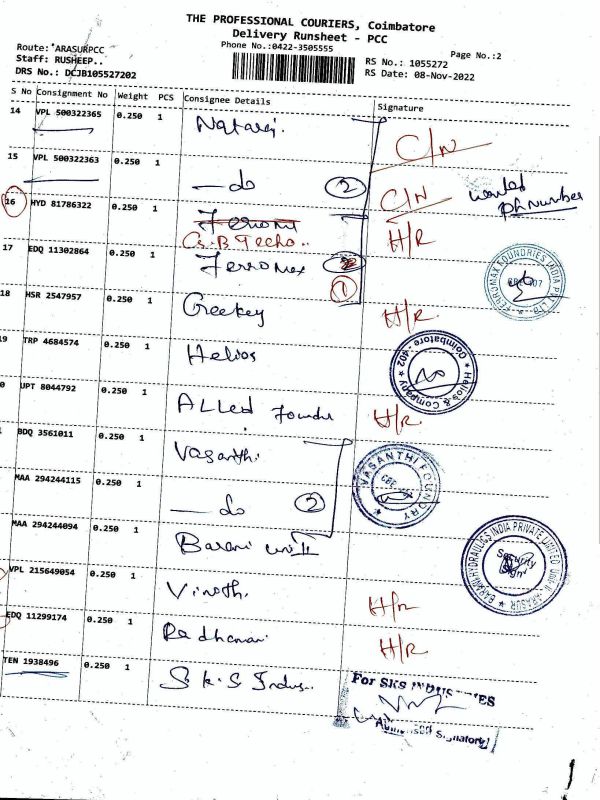 THE PROFESSIONAL COURIERS, Coimbatore
Delivery Runsheet - PCC
Phone No.:0422-3505555
Page No.:2
Route: ARASURPCC
Staff: RUSHEEP..
DRS No.: DCJB105527202
RS No.: 1055272
RS Date: 08-Nov-2022
S No Consignment No Weight PCS Consignee Details Signature
14 VPL 500322365 0.250 1 Nataraj. C/N
15 VPL 500322363 0.250 1 — do (2) C/N wanted ph number
16 HYD 81786322 0.250 1 G.B Techo.. H/R
17 EDQ 11302864 0.250 1 Ferromax (1)
FERROMAX FOUNDRIES INDIA PVT LTD
18 HSR 2547957 0.250 1 Geekey H/R
9 TRP 4684574 0.250 1 Helios
Helios & Company Coimbatore - 402
0 UPT 8044792 0.250 1 ALLied Foundr H/R
BDQ 3561011 0.250 1 Vasanthi
VASANTHI FOUNDRY
CBE
MAA 294244115 0.250 1 — do (2)
MAA 294244094 0.250 1 Barani unit II
BARANI HYDRAULICS INDIA PRIVATE LIMITED Unit-II ARASUR
Security Sign
VPL 215649054 0.250 1 Vinoth. H/R
EDQ 11299174 0.250 1 Radhamani H/R
TEN 1938496 0.250 1 S.K.S Indus..
For SKS INDUSTRIES
Authorised Signatory